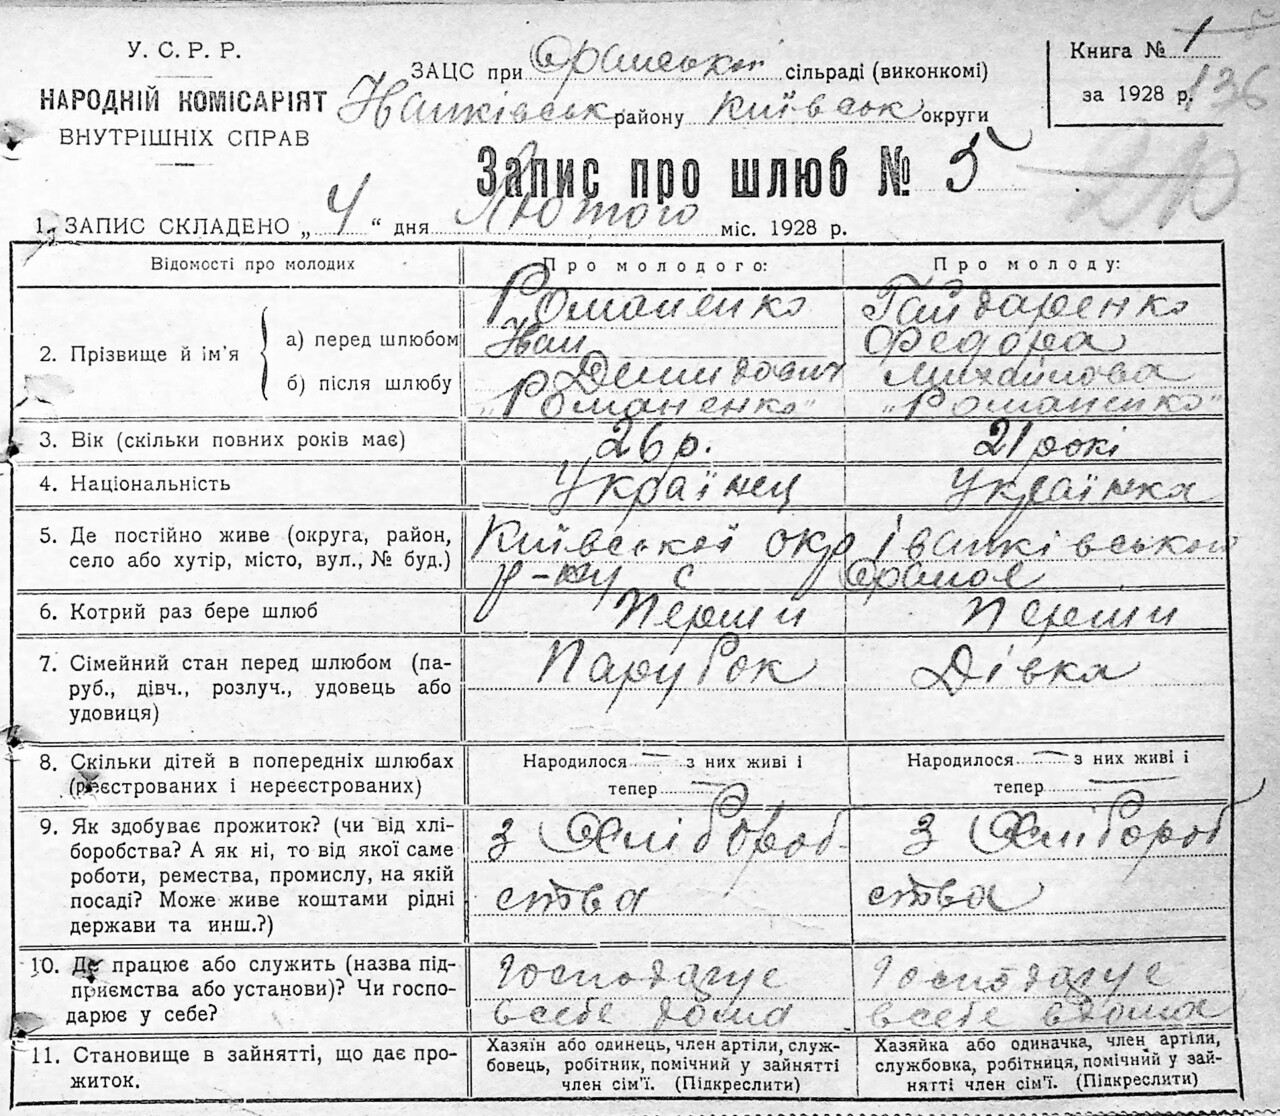 У. С. Р. Р.
НАРОДНІЙ КОМІСАРІЯТ
ВНУТРІШНІХ СПРАВ
ЗАЦС при Оранської сільраді (виконкомі)
Іванківськ району Київськ округи
Книга № 1
за 1928 р. 136
Запис про шлюб № 5
1. ЗАПИС СКЛАДЕНО „ 4 “ дня Лютого міс. 1928 р.
Відомості про молодих
Про молодого:
Про молоду:
2. Прізвище й ім'я
а) перед шлюбом
б) після шлюбу
Романенко
Іван
Демидович
„Романенко“
Гайдаренко
Федора
Михайлова
„Романенко“
3. Вік (скільки повних років має)
26 р.
21 рокі
4. Національність
Українец
Українка
5. Де постійно живе (округа, район,
село або хутір, місто, вул., № буд.)
Київської окр Іванківського
р-ну с Ораное
6. Котрий раз бере шлюб
Перши
Перши
7. Сімейний стан перед шлюбом (па-
руб., дівч., розлуч., удовець або
удовиця)
Парубок
Дівка
8. Скільки дітей в попередніх шлюбах
(реєстрованих і нереєстрованих)
Народилося — з них живі і
тепер —
Народилося — з них живі і
тепер —
9. Як здобуває прожиток? (чи від хлі-
боробства? А як ні, то від якої саме
роботи, ремества, промислу, на якій
посаді? Може живе коштами рідні
держави та инш.?)
З Хлібороб-
ства
З Хлібороб
ства
10. Де працює або служить (назва під-
приємства або установи)? Чи госпо-
дарює у себе?
Господарує
в себе дома
Господарує
в себе вдома
11. Становище в зайнятті, що дає про-
житок.
Хазяїн або одинець, член артіли, служ-
бовець, робітник, помічний у зайнятті
член сім'ї. (Підкреслити)
Хазяйка або одиначка, член артіли,
службовка, робітниця, помічний у зай-
нятті член сім'ї. (Підкреслити)